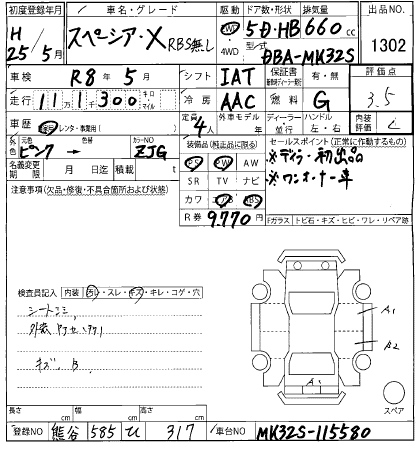 初度登録年月 車名・グレード 駆動 ドア数・形状 排気量 出品NO.
H 25/5月 スペーシア・X RBS無し 2WD 4WD 5D・HB 660cc 1302
型式 DBA-MK32S
車検 R8年5月 シフト IAT 保証書 有・無 評価点
走行 11万1千300 キロ マイル 冷房 AAC 燃料 G 3.5
車歴 自家用 レンタ・事業用( ) 定員 4人 外車モデル 年 ディーラー 並行 ハンドル 左・右 内装評価
外色 元色 ピンク → カラーNO ZJG 装備品(純正品に限る) セールスポイント(正常に作動するもの)
名義変更期限 月 日迄 積載 t PS PW AW ※ディラー初出品
注意事項(欠品・修復・不具合箇所および状態) SR TV ナビ ※ワンオーナー車
カワ エアB ABS
R券 9,770円 Fガラス トビ石・キズ・ヒビ・ワレ・リペア跡
検査員記入 内装 汚レ・スレ・キズ・キレ・コゲ・穴
シートシミ
キズ、B
A1
A2
A1
スペア
長さ cm 幅 cm 高さ cm
登録NO 熊谷 585 ひ 317 車台NO MK32S-115580